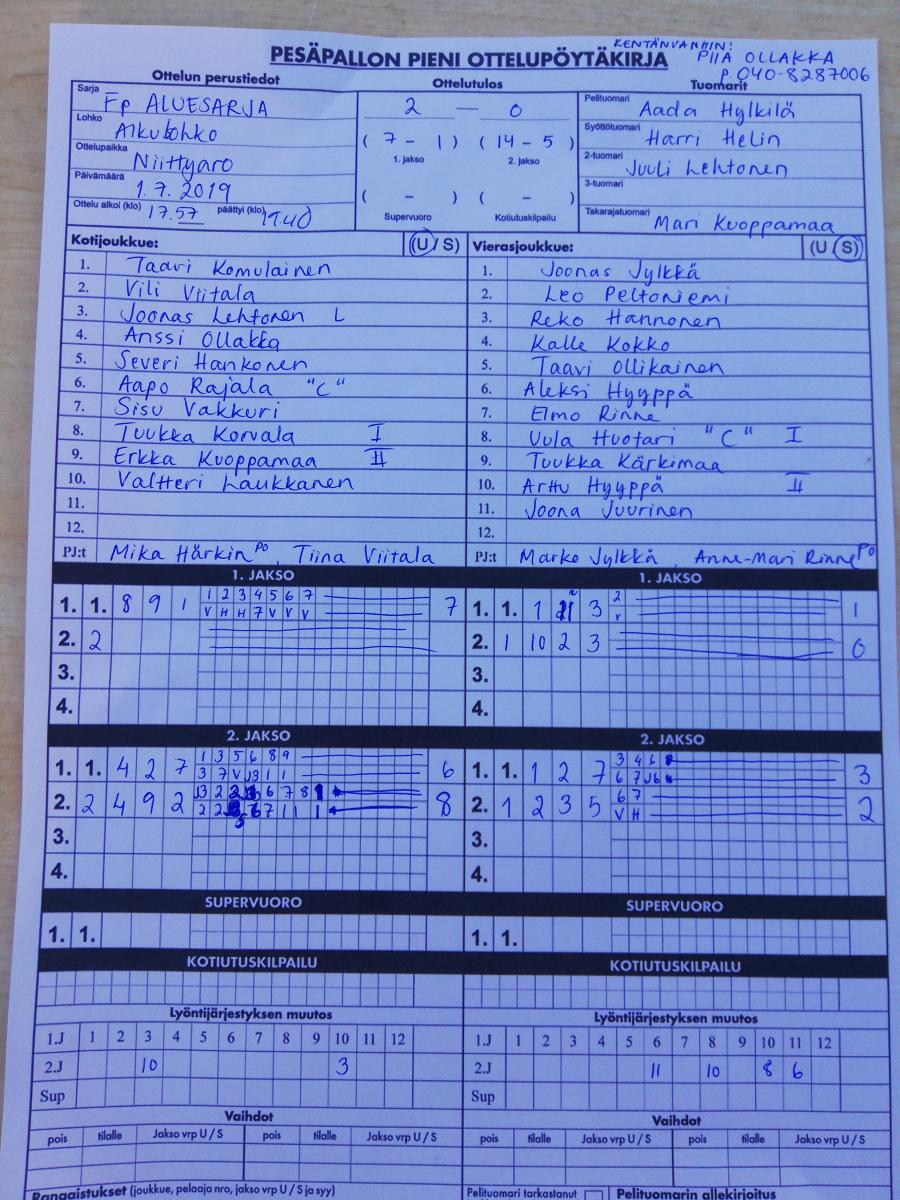 KENTÄNVANHIN:
PIIA OLLAKKA
p. 040-8287006
PESÄPALLON PIENI OTTELUPÖYTÄKIRJA
Ottelun perustiedot
Ottelutulos
Tuomarit
Sarja Fp ALUESARJA
Lohko Alkulohko
Ottelupaikka Niittyaro
Päivämäärä 1.7.2019
Ottelu alkoi (klo) 17.57 päättyi (klo) 19.40
2 — 0
( 7 - 1 ) ( 14 - 5 )
1. jakso 2. jakso
( - ) ( - )
Supervuoro Kotiutuskilpailu
Pelituomari Aada Hylkilä
Syöttötuomari Harri Helin
2-tuomari Juuli Lehtonen
3-tuomari
Takarajatuomari Mari Kuoppamaa
Kotijoukkue: (U / S)
1. Taavi Komulainen
2. Vili Viitala
3. Joonas Lehtonen L
4. Anssi Ollakka
5. Severi Hankonen
6. Aapo Rajala "C"
7. Sisu Vakkuri
8. Tuukka Korvala I
9. Erkka Kuoppamaa II
10. Valtteri Laukkanen
11.
12.
PJ:t Mika Härkin PO, Tiina Viitala
Vierasjoukkue: (U / S)
1. Joonas Jylkkä
2. Leo Peltoniemi
3. Reko Hannonen
4. Kalle Kokko
5. Taavi Ollikainen
6. Aleksi Hyyppä
7. Elmo Rinne
8. Uula Huotari "C" I
9. Tuukka Kärkimaa
10. Arttu Hyyppä II
11. Joona Juurinen
12.
PJ:t Marko Jylkkä, Anne-Mari Rinne PO
1. JAKSO
1. 1. 8 9 1 1 2 3 4 5 6 7 7
V H H 7 V V V
2. 2
3.
4.
1. JAKSO
1. 1. 1 3 2 1
V
2. 1 10 2 3 0
3.
4.
2. JAKSO
1. 1. 4 2 7 1 3 5 6 8 9 6
3 7 V J3 1 1
2. 2 4 9 2 J3 2 6 7 8 8
2 2 7 1 1 1
3.
4.
2. JAKSO
1. 1. 1 2 7 3 4 6 3
6 7 J6
2. 1 2 3 5 6 7 2
V H
3.
4.
SUPERVUORO
1. 1.
SUPERVUORO
1. 1.
KOTIUTUSKILPAILU
KOTIUTUSKILPAILU
Lyöntijärjestyksen muutos
1.J 1 2 3 4 5 6 7 8 9 10 11 12
2.J 10 3
Sup
Lyöntijärjestyksen muutos
1.J 1 2 3 4 5 6 7 8 9 10 11 12
2.J 11 10 8 6
Sup
Vaihdot
pois tilalle Jakso vrp U / S pois tilalle Jakso vrp U / S
Vaihdot
pois tilalle Jakso vrp U / S pois tilalle Jakso vrp U / S
Rangaistukset (joukkue, pelaaja nro, jakso vrp U / S ja syy)
Pelituomari tarkastanut
Pelituomarin allekirjoitus